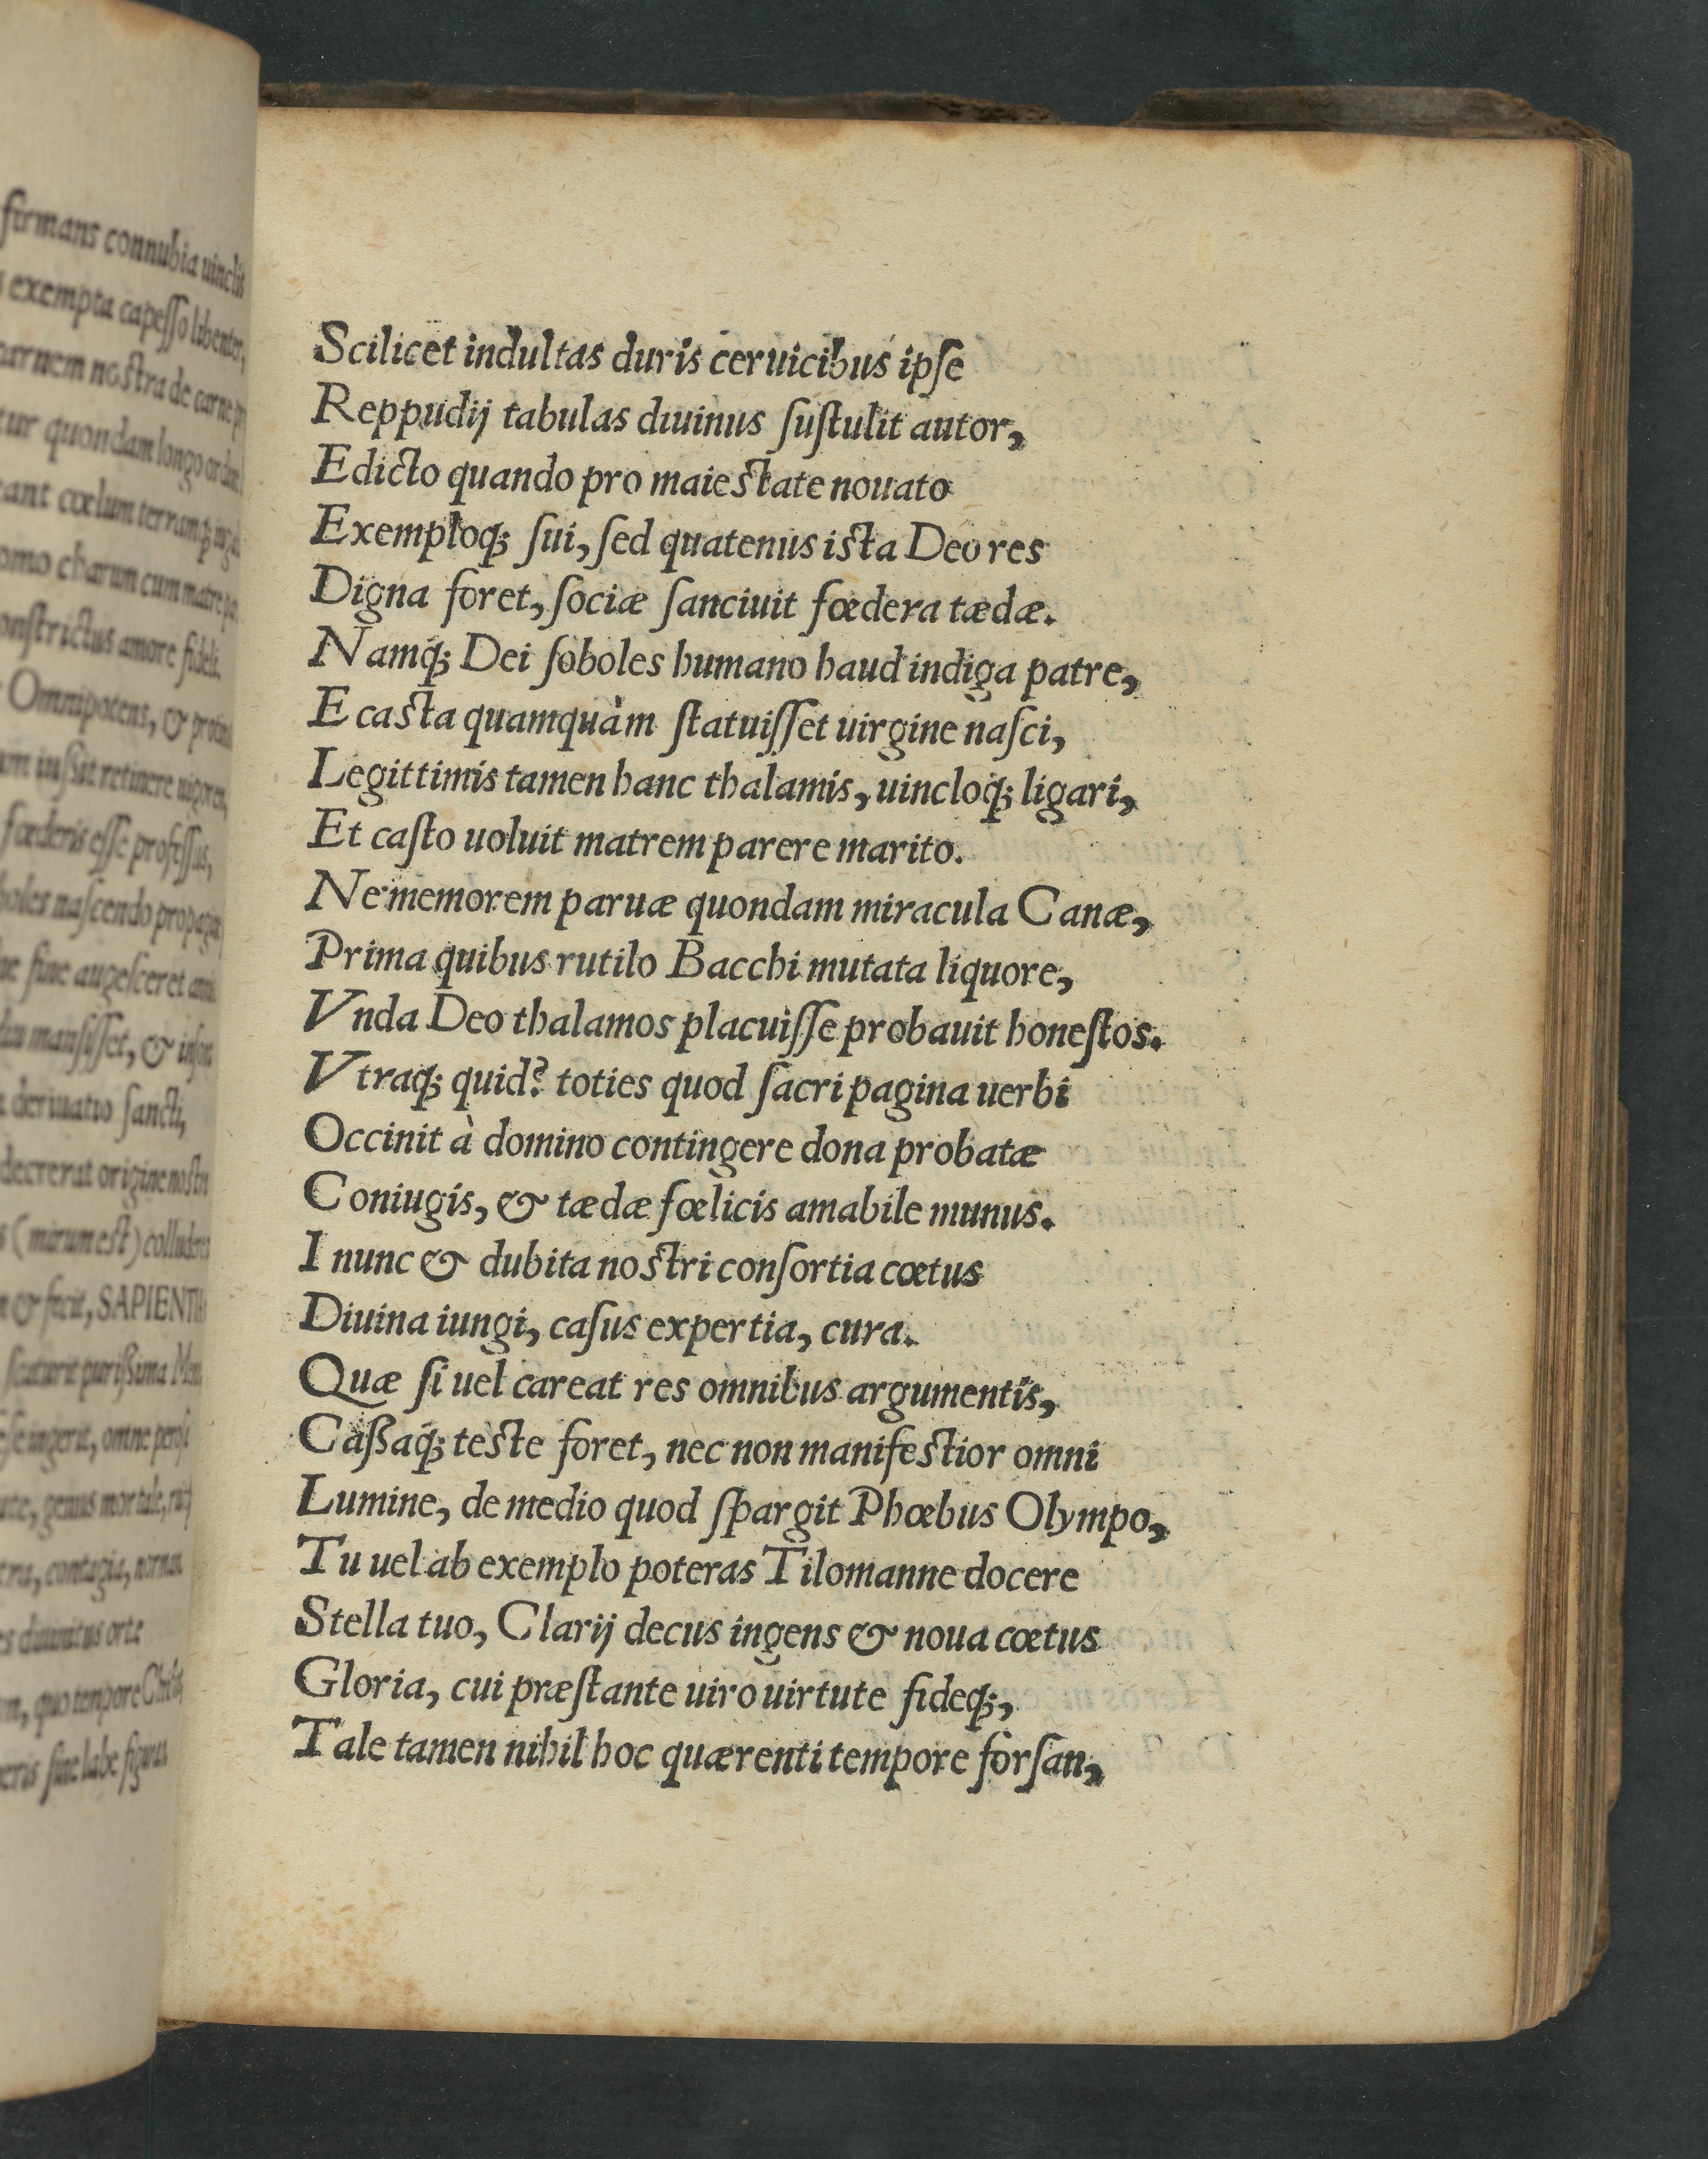 firmans connubia uinclis
exempta capeſſo libenter,
carnem noſtra de carne
quondam longo ordine
cœlum terramq́;
charum cum matre
conſtrictus amore fideli.
Omnipotens, &
iuſsit retinere uigorem,
fœderis eſſe profeſſus,
naſcendo
ſine augeſceret
manſiſſet, &
deriuatio ſancti,
origine noſtri
(mirum est)
& fecit, SAPIENTIA
puriſsima
ingerit, omne
genus mortale,
contagia,
diuinitus orte
quo tempore
ſine labe figuras
Scilicet indultas duris ceruicibus ipſe
Reppudij tabulas diuinus ſuſtulit autor,
Edicto quando pro maieſtate nouato
Exemploq́; ſui, ſed quatenus iſta Deo res
Digna foret, ſociæ ſanciuit fœdera tædæ.
Namq́; Dei ſoboles humano haud indiga patre,
E caſta quamquàm ſtatuiſſet uirgine naſci,
Legittimis tamen hanc thalamis, uincloq́; ligari,
Et caſto uoluit matrem parere marito.
Ne memorem paruæ quondam miracula Canæ,
Prima quibus rutilo Bacchi mutata liquore,
Vnda Deo thalamos placuiſſe probauit honeſtos.
Vtraq́; quid? toties quod ſacri pagina uerbi
Occinit à domino contingere dona probatæ
Coniugis, & tædæ fœlicis amabile munus.
I nunc & dubita noſtri conſortia cœtus
Diuina iungi, caſus expertia, cura.
Quæ ſi uel careat res omnibus argumentis,
Caßaq́; teſte foret, nec non manifeſtior omni
Lumine, de medio quod ſpargit Phœbus Olympo,
Tu uel ab exemplo poteras Tilomanne docere
Stella tuo, Clarij decus ingens & noua cœtus
Gloria, cui præſtante uiro uirtute fideq́;,
Tale tamen nihil hoc quærenti tempore forſan,